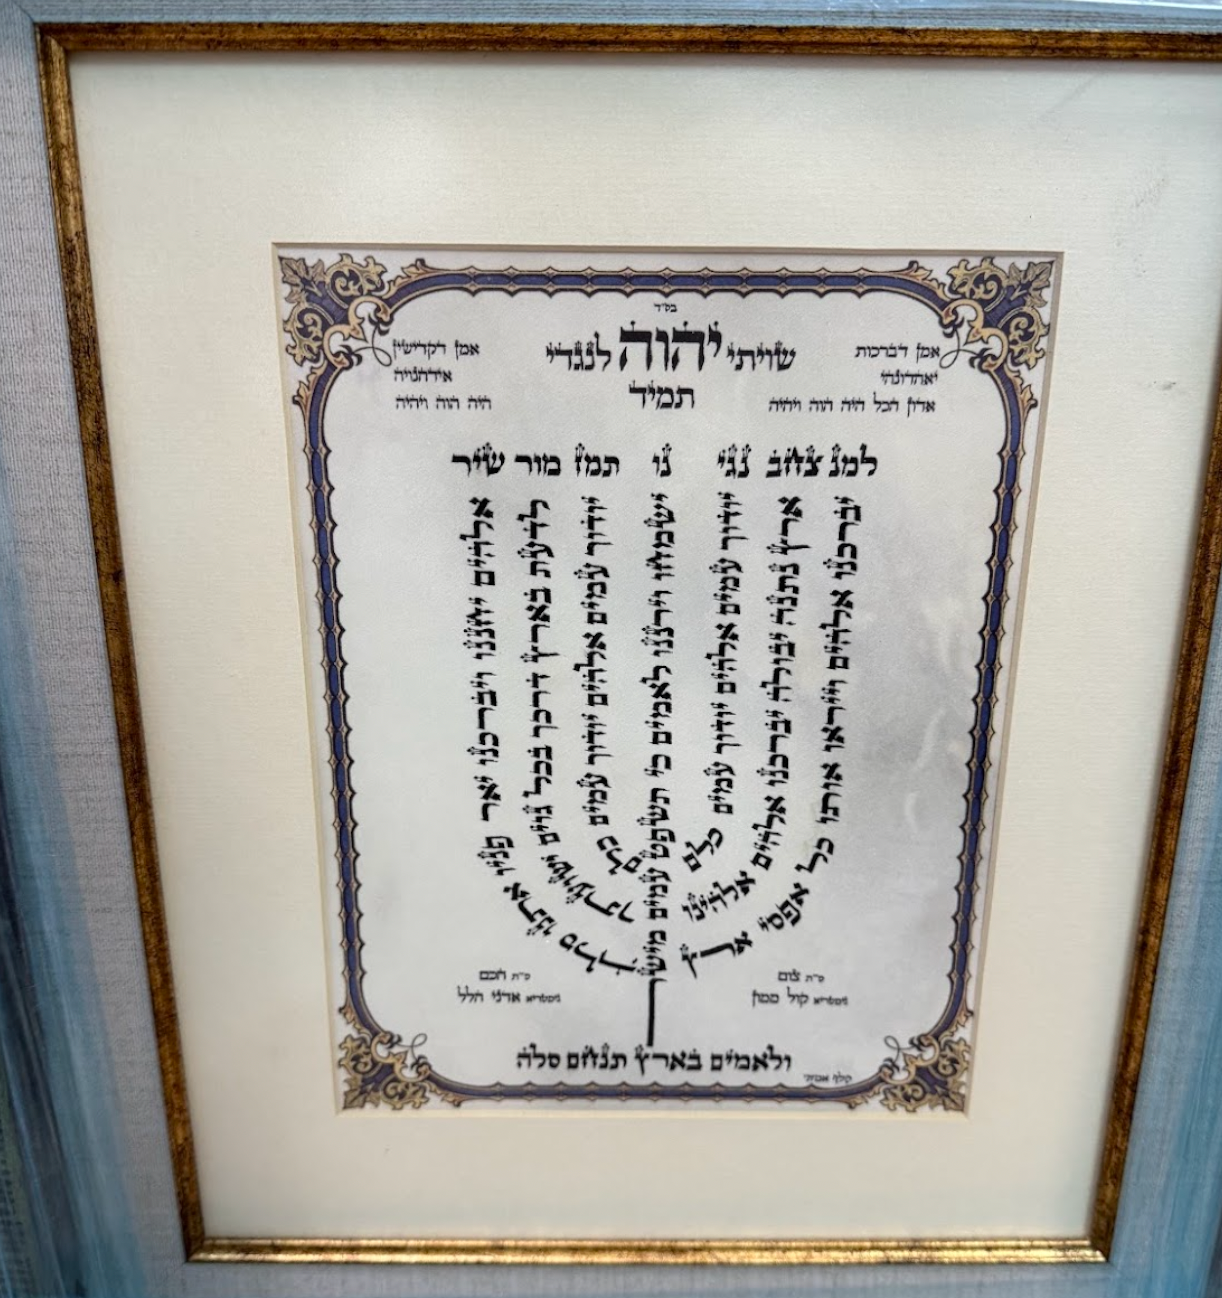 בס"ד
אמן דברכות
יאהדונהי
אדון הכל היה הוה ויהיה
שויתי יהוה לנגדי
תמיד
אמן דקדישין
אידהנויה
היה הוה ויהיה
למנ צחב נגי נו תמז מור שיר
יברכנו אלהים וייראו אותו כל אפסי ארץ
ארץ נתנה יבולה יברכנו אלהים אלהינו
יודוך עמים אלהים יודוך עמים כלם
ישמחו וירננו לאמים כי תשפט עמים מישור
יודוך עמים אלהים יודוך עמים כלם
לדעת בארץ דרכך בכל גוים ישועתך
אלהים יחננו ויברכנו יאר פניו אתנו סלה
ס"ת צום
גימטריא קול ממון
ס"ת חכם
גימטריא אדני הלל
ולאמים בארץ תנחם סלה
קלף